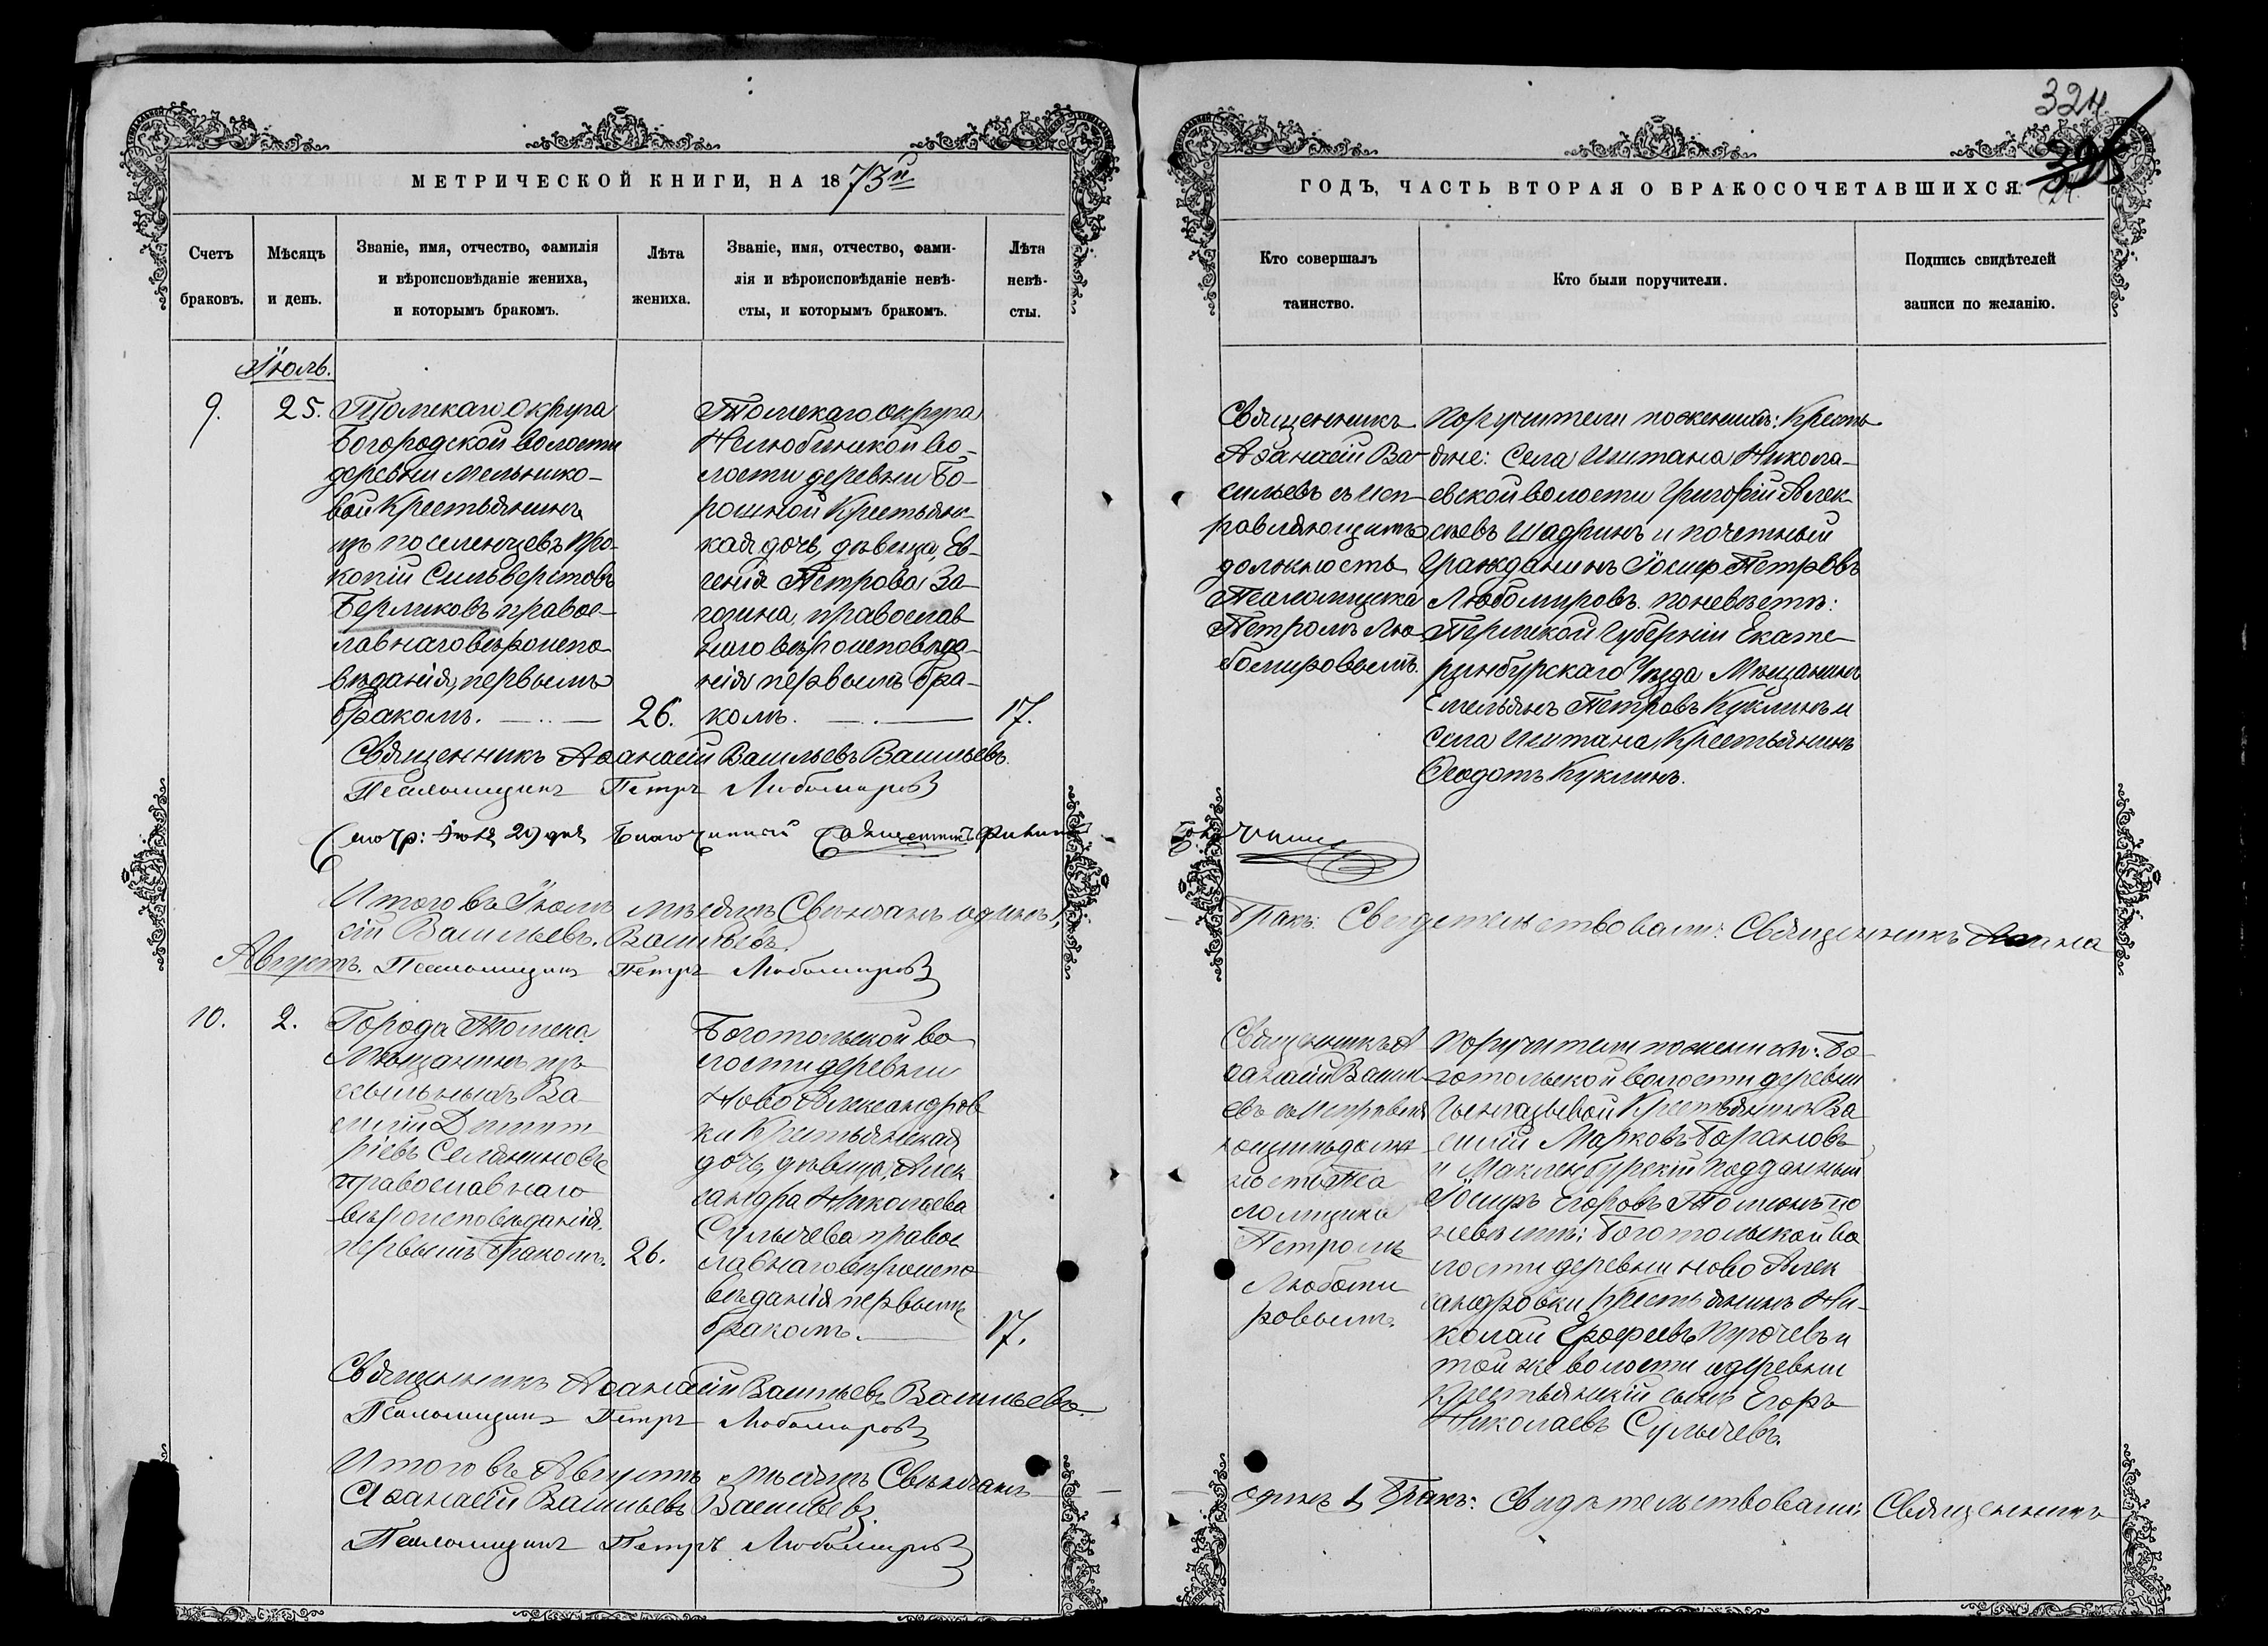 324
МЕТРИЧЕСКОЙ КНИГИ, НА 1873й
ГОДЪ, ЧАСТЬ ВТОРАЯ О БРАКОСОЧЕТАВШИХСЯ.
Счетъ
браковъ.
Мѣсяцъ
и день.
Званіе, имя, отчество, фамилія
и вѣроисповѣданіе жениха,
и которымъ бракомъ.
Лѣта
жениха.
Званіе, имя, отчество, фами-
лія и вѣроисповѣданіе невѣ-
сты, и которымъ бракомъ.
Лѣта
невѣ-
сты.
Кто совершалъ
таинство.
Кто были поручители.
Подпись свидѣтелей
записи по желанію.
Іюль.
9.
25.
Томскаго Округа
Богородской волости
деревни Мельнико-
вой Крестьянинъ
изъ поселенцевъ Про-
копій Сильверстовъ
Берликовъ правос-
лавнаго вѣроиспо
вѣданія, первымъ
бракомъ.
26.
Томскаго округа
Нелюбинской во-
лости деревни Бо-
рошной Крестьянс-
кая дочь, дѣвица, Ев-
генія Петрова За-
гозина, православ
наго вѣроисповѣда-
нія первымъ бра-
комъ.
17.
Священникъ
Аѳанасій Ва-
сильевъ съ исп
равляющимъ
должность
Псаломщика
Петромъ Лю-
бомировымъ.
Поручители по женихѣ: Кресть
яне: Села Иштана Никола-
евской волости Григорій Алек
сѣевъ Шадринъ и почетный
Гражданинъ Іосиф Петровъ
Любомировъ. по невѣстѣ:
Пермской Губерніи Екате-
ринбурскаго Уѣзда Мѣщанинъ
Емельянъ Петровъ Куклинъ и
Села Иштана Крестьянинъ
Ѳеодотъ Куклинъ.
Священникъ Аѳанасій Васильевъ Васильевъ.
Псаломщикъ Петръ Любомировъ
Смотр: 29 дня Благочинный Священникъ
Итого въ Іюлѣ мѣсяцѣ Свѣнчанъ одинъ 1,
бракъ: Свидетельствовали: Священникъ Аѳана
сій Васильевъ Васильевъ.
Псаломщикъ Петръ Любомировъ
Августъ.
10.
2.
Города Томска
Мѣщанинъ из
ссыльныхъ Ва
силій Димит
ріевъ Селяниновъ
православнаго
вѣроисповѣданія,
первымъ бракомъ.
26.
Боготольской во
лости деревни
Ново Александров
ки Крестьянская
дочь, дѣвица, Алек
сандра Николаева
Сулычева правос
лавнаго вѣроиспо
вѣданія первымъ
бракомъ.
17.
Священникъ А
ѳанасій Васил
евъ съ исправля
ющимъ долж
ность Пса
ломщика
Петромъ
Любоми
ровымъ.
Поручители по женихѣ: Бо-
готольской волости деревни
Крестьянинъ Ва
силій Марковъ Баргановъ
и Макленбурскій подданный
Іосифъ Егоровъ Томсонъ по
невѣстѣ: Боготольской во
лости деревни ново Алек
сандровки Крестьянинъ Ни-
колай Ерофеевъ и
той же волости и деревни
Крестьянскій сынъ Егоръ
Николаевъ Сулычевъ.
Священникъ Аѳанасій Васильевъ Васильевъ.
Псаломщикъ Петръ Любомировъ
Итого въ Августѣ мѣсяцѣ Свѣнчанъ
одинъ 1 Бракъ: Свидѣтельствовали: Священникъ
Аѳанасій Васильевъ Васильевъ.
Псаломщикъ Петръ Любомировъ